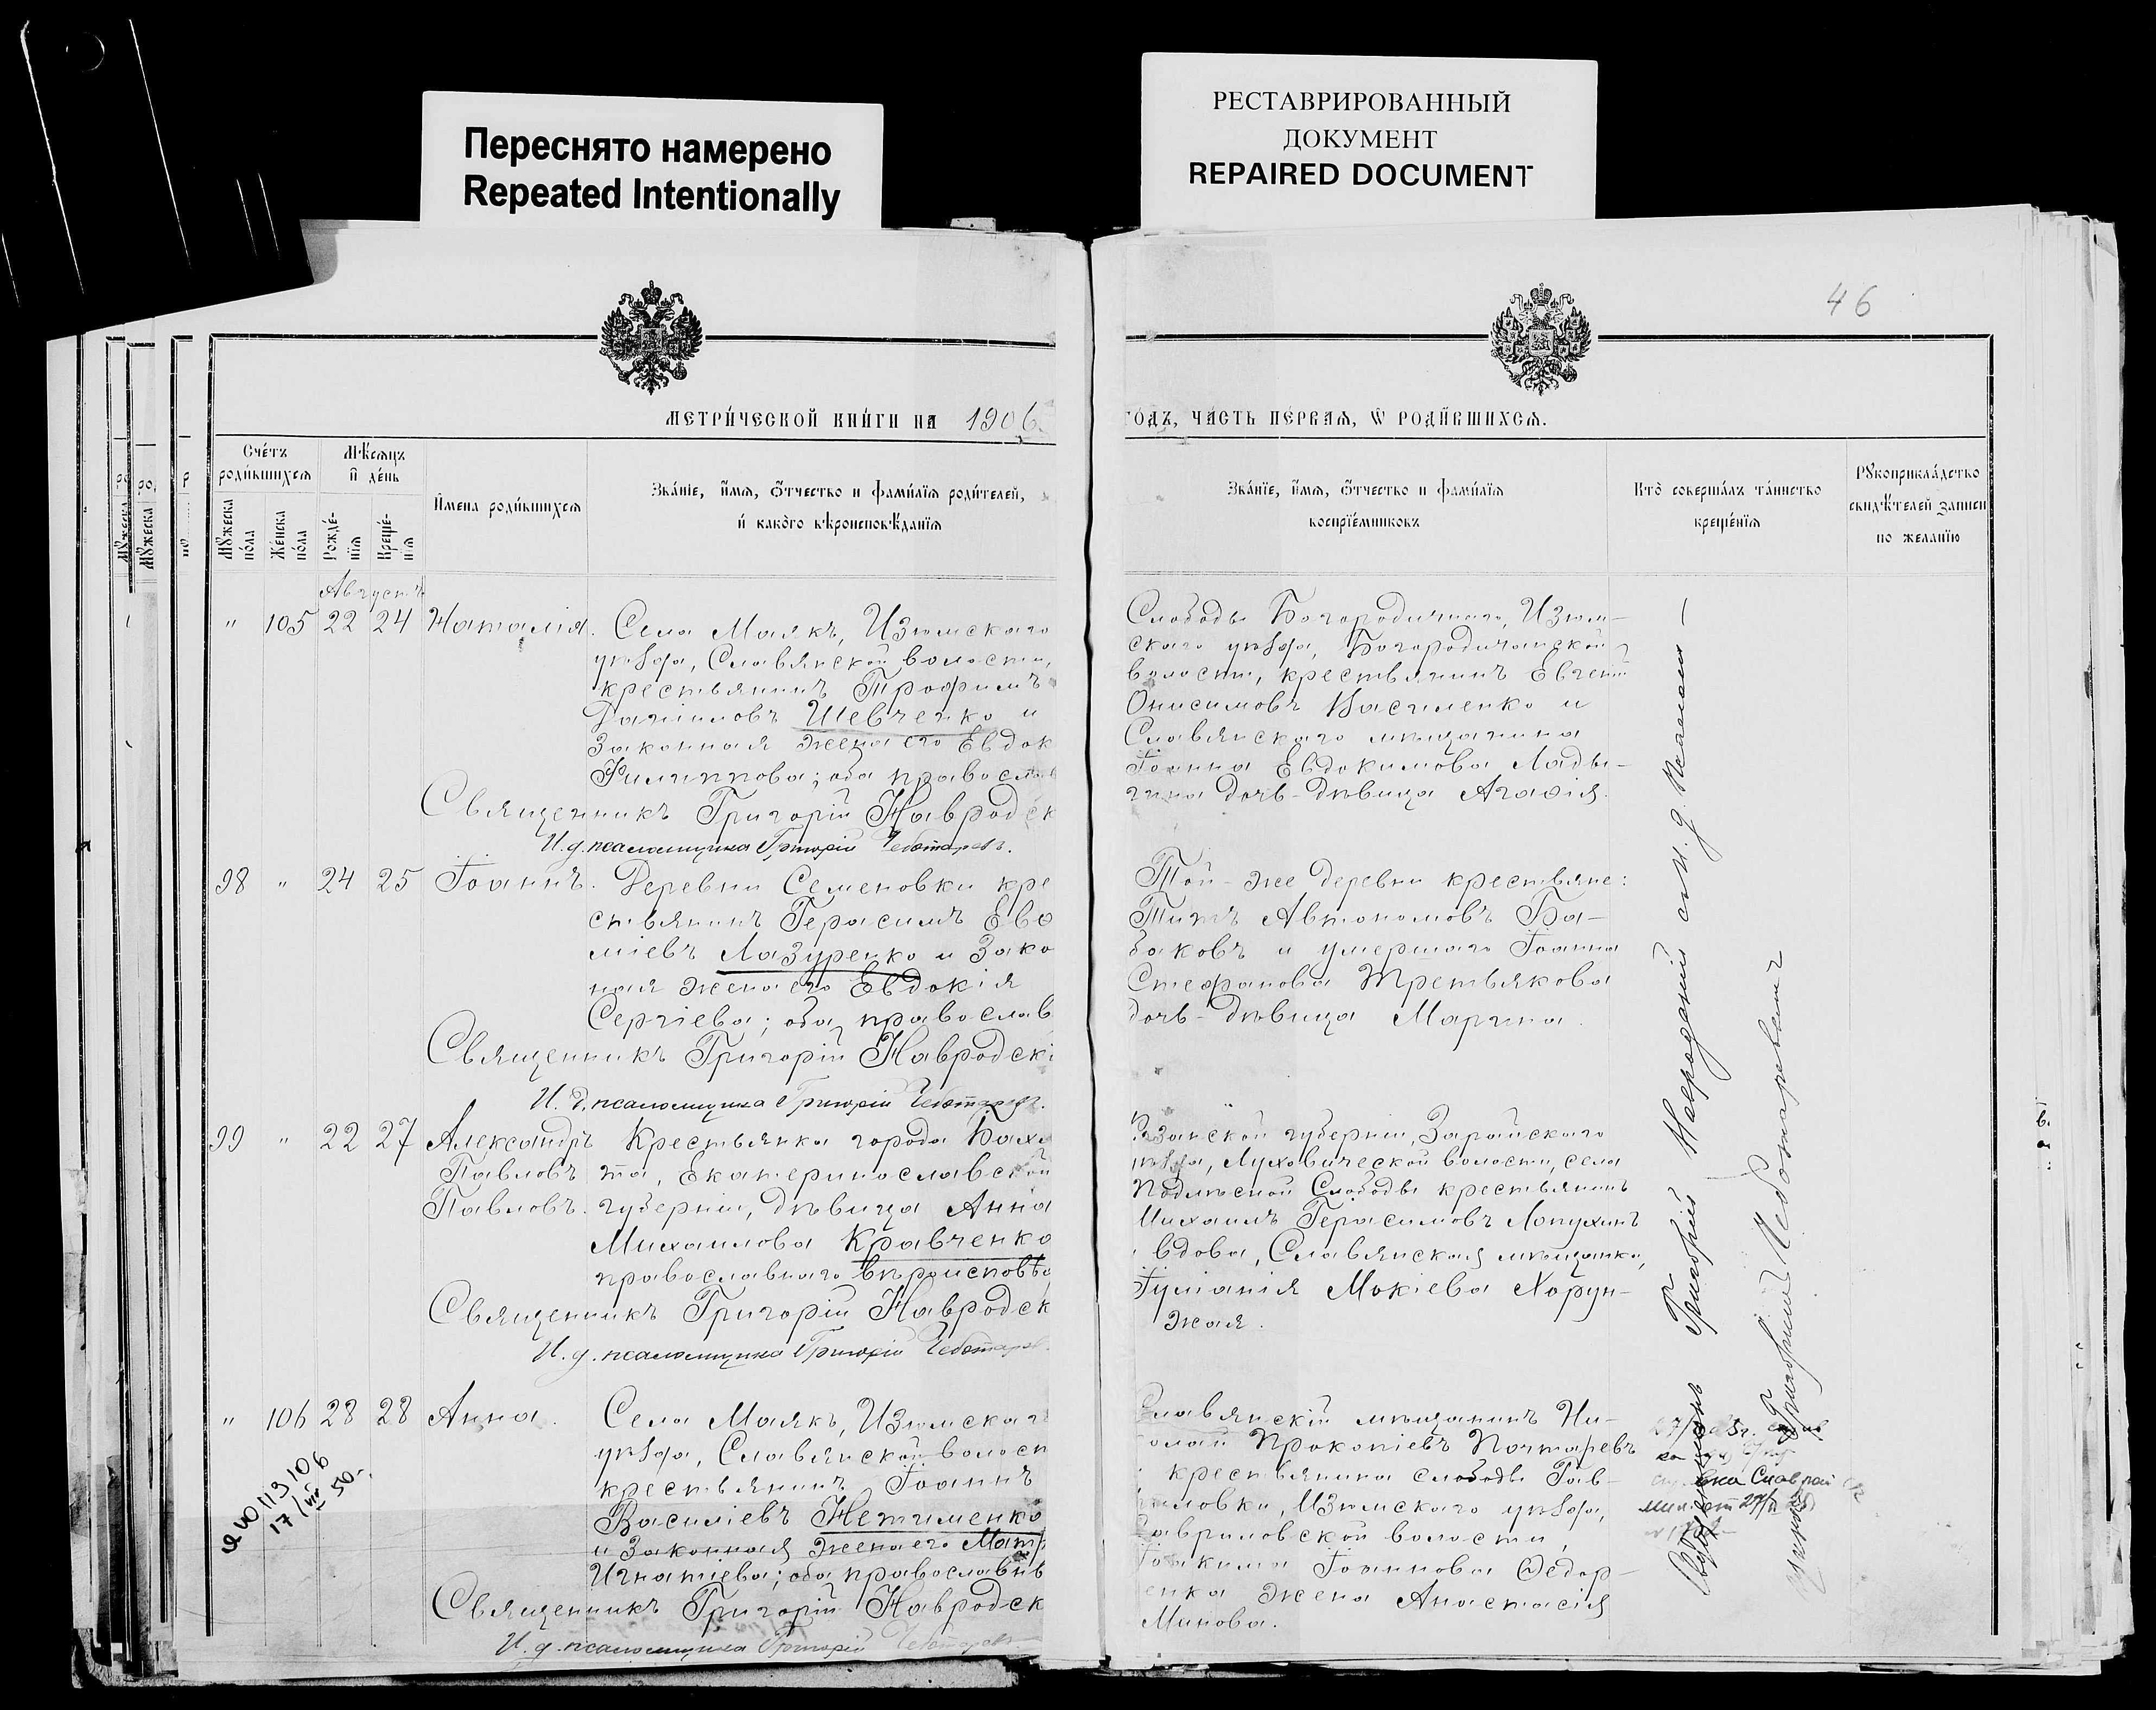 Переснято намерено
Repeated Intentionally
РЕСТАВРИРОВАННЫЙ
ДОКУМЕНТ
REPAIRED DOCUMENT
46
МЕТРИ́ЧЕСКОЙ КНИ́ГИ НА 1906
ГО́ДЪ, ЧА́СТЬ ПЕ́РВАЯ, Ѡ҆ РОДИ́ВШИХСЯ.
Сче́тъ
роди́вшихся
Мѣ́сяцъ
и҆ де́нь
Мꙋ́жеска
по́ла
Же́нска
по́ла
Рожде́-
нїя
Креще́-
нїя
И҆мена роди́вшихся
Зва́нїе, и҆́мя, ѻ҆́тчество и фами́лїя роди́телей,
и҆ како́го вѣроисповѣ́данїя
Зва́нїе, и҆́мя, ѻ҆́тчество и фами́лїя
воспрїе́мниковъ
Кто̀ соверша́лъ та́инство
креще́нїя
Рꙋкоприкла́дство
свидѣ́телей записи
по жела́нїю
Августъ
" 105 22 24 Наталія. Села Маякъ, Изюмскаго
уѣзда, Славянской волости,
крестьянинъ Трофимъ
Даніиловъ Шевченко и
законная жена его Евдок
Филиппова; оба правосла
Священникъ Григорій Навродск
И. д. псаломщика Григорій Чеботаревъ.
Слободы Богородичнаго, Изюм-
скаго уѣзда, Богородичанской
волости, крестьянинъ Евгеній
Онисимовъ Василенко и
Славянскаго мѣщанина
Іоанна Евдокимова Лады-
гина дочь-дѣвица Агафія.
98 " 24 25 Іоаннъ. Деревни Семеновки кре
стьянинъ Герасимъ Евѳ
міевъ Лазуренко и зако
ная жена его Евдокія
Сергіева; оба православ
Священникъ Григорій Навродскі
И. д. псаломщика Григорій Чеботаревъ.
Той-же деревни крестьяне:
Титъ Автономовъ Ба-
баковъ и умершаго Іоанна
Стефанова Третьякова
дочь-дѣвица Марина.
99 " 22 27 Александръ Крестьянка города Бахм
Павловъ та, Екатеринославской
Павловъ. губерніи, дѣвица Анна
Михаилова Кравченко
православнаго вѣроисповѣд
Священникъ Григорій Навродск
И. д. псаломщика Григорій Чеботарев
Рязанской губерніи, Зарайскаго
уѣзда, Луховической волости, села
Подлѣсной Слободы крестьянинъ
Михаилъ Герасимовъ Лопухинъ
вдова, Славянская мѣщанка,
Іуліанія Мокіева Хорун-
жая.
" 106 28 28 Анна. Села Маякъ, Изюмскаг
уѣзда, Славянской волост
крестьянинъ Іоаннъ
Василіевъ Нетименко
и законная жена его Матр
Игнатіева; оба православнв
Священникъ Григорій Навродск
И. д. псаломщика Григорій Чеботаревъ
Славянскій мѣщанинъ Ни-
колай Прокопіевъ Почтаревъ
крестьянина слободы Гав-
риловки, Изюмскаго уѣзда,
Гавриловской волости,
Іоакима Іоаннова Федор-
енка жена Анастасія
Минова.
Священникъ Григорій Навродскій с И. д. псалом-
щика Григорій Чеботаревъ
113106
17/VII 50